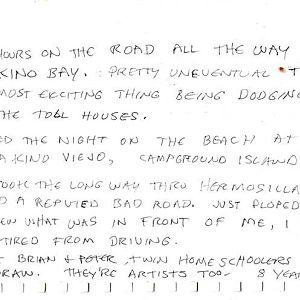 HOURS ON THE ROAD ALL THE WAY
KINO BAY. PRETTY UNEVENTUAL T
MOST EXCITING THING BEING DODGING
THE TOLL HOUSES.
ED THE NIGHT ON THE BEACH AT
A KINO VIEJO, CAMPGROUND ISLAND
TOOK THE LONG WAY THRU HERMOSILLA
D A REPUTED BAD ROAD. JUST PLOPED
EW WHAT WAS IN FRONT OF ME, I
TIRED FROM DRIVING.
T BRIAN & PETER, TWIN HOMESCHOOLERS
DRAW. THEY'RE ARTISTS TOO- 8 YEA